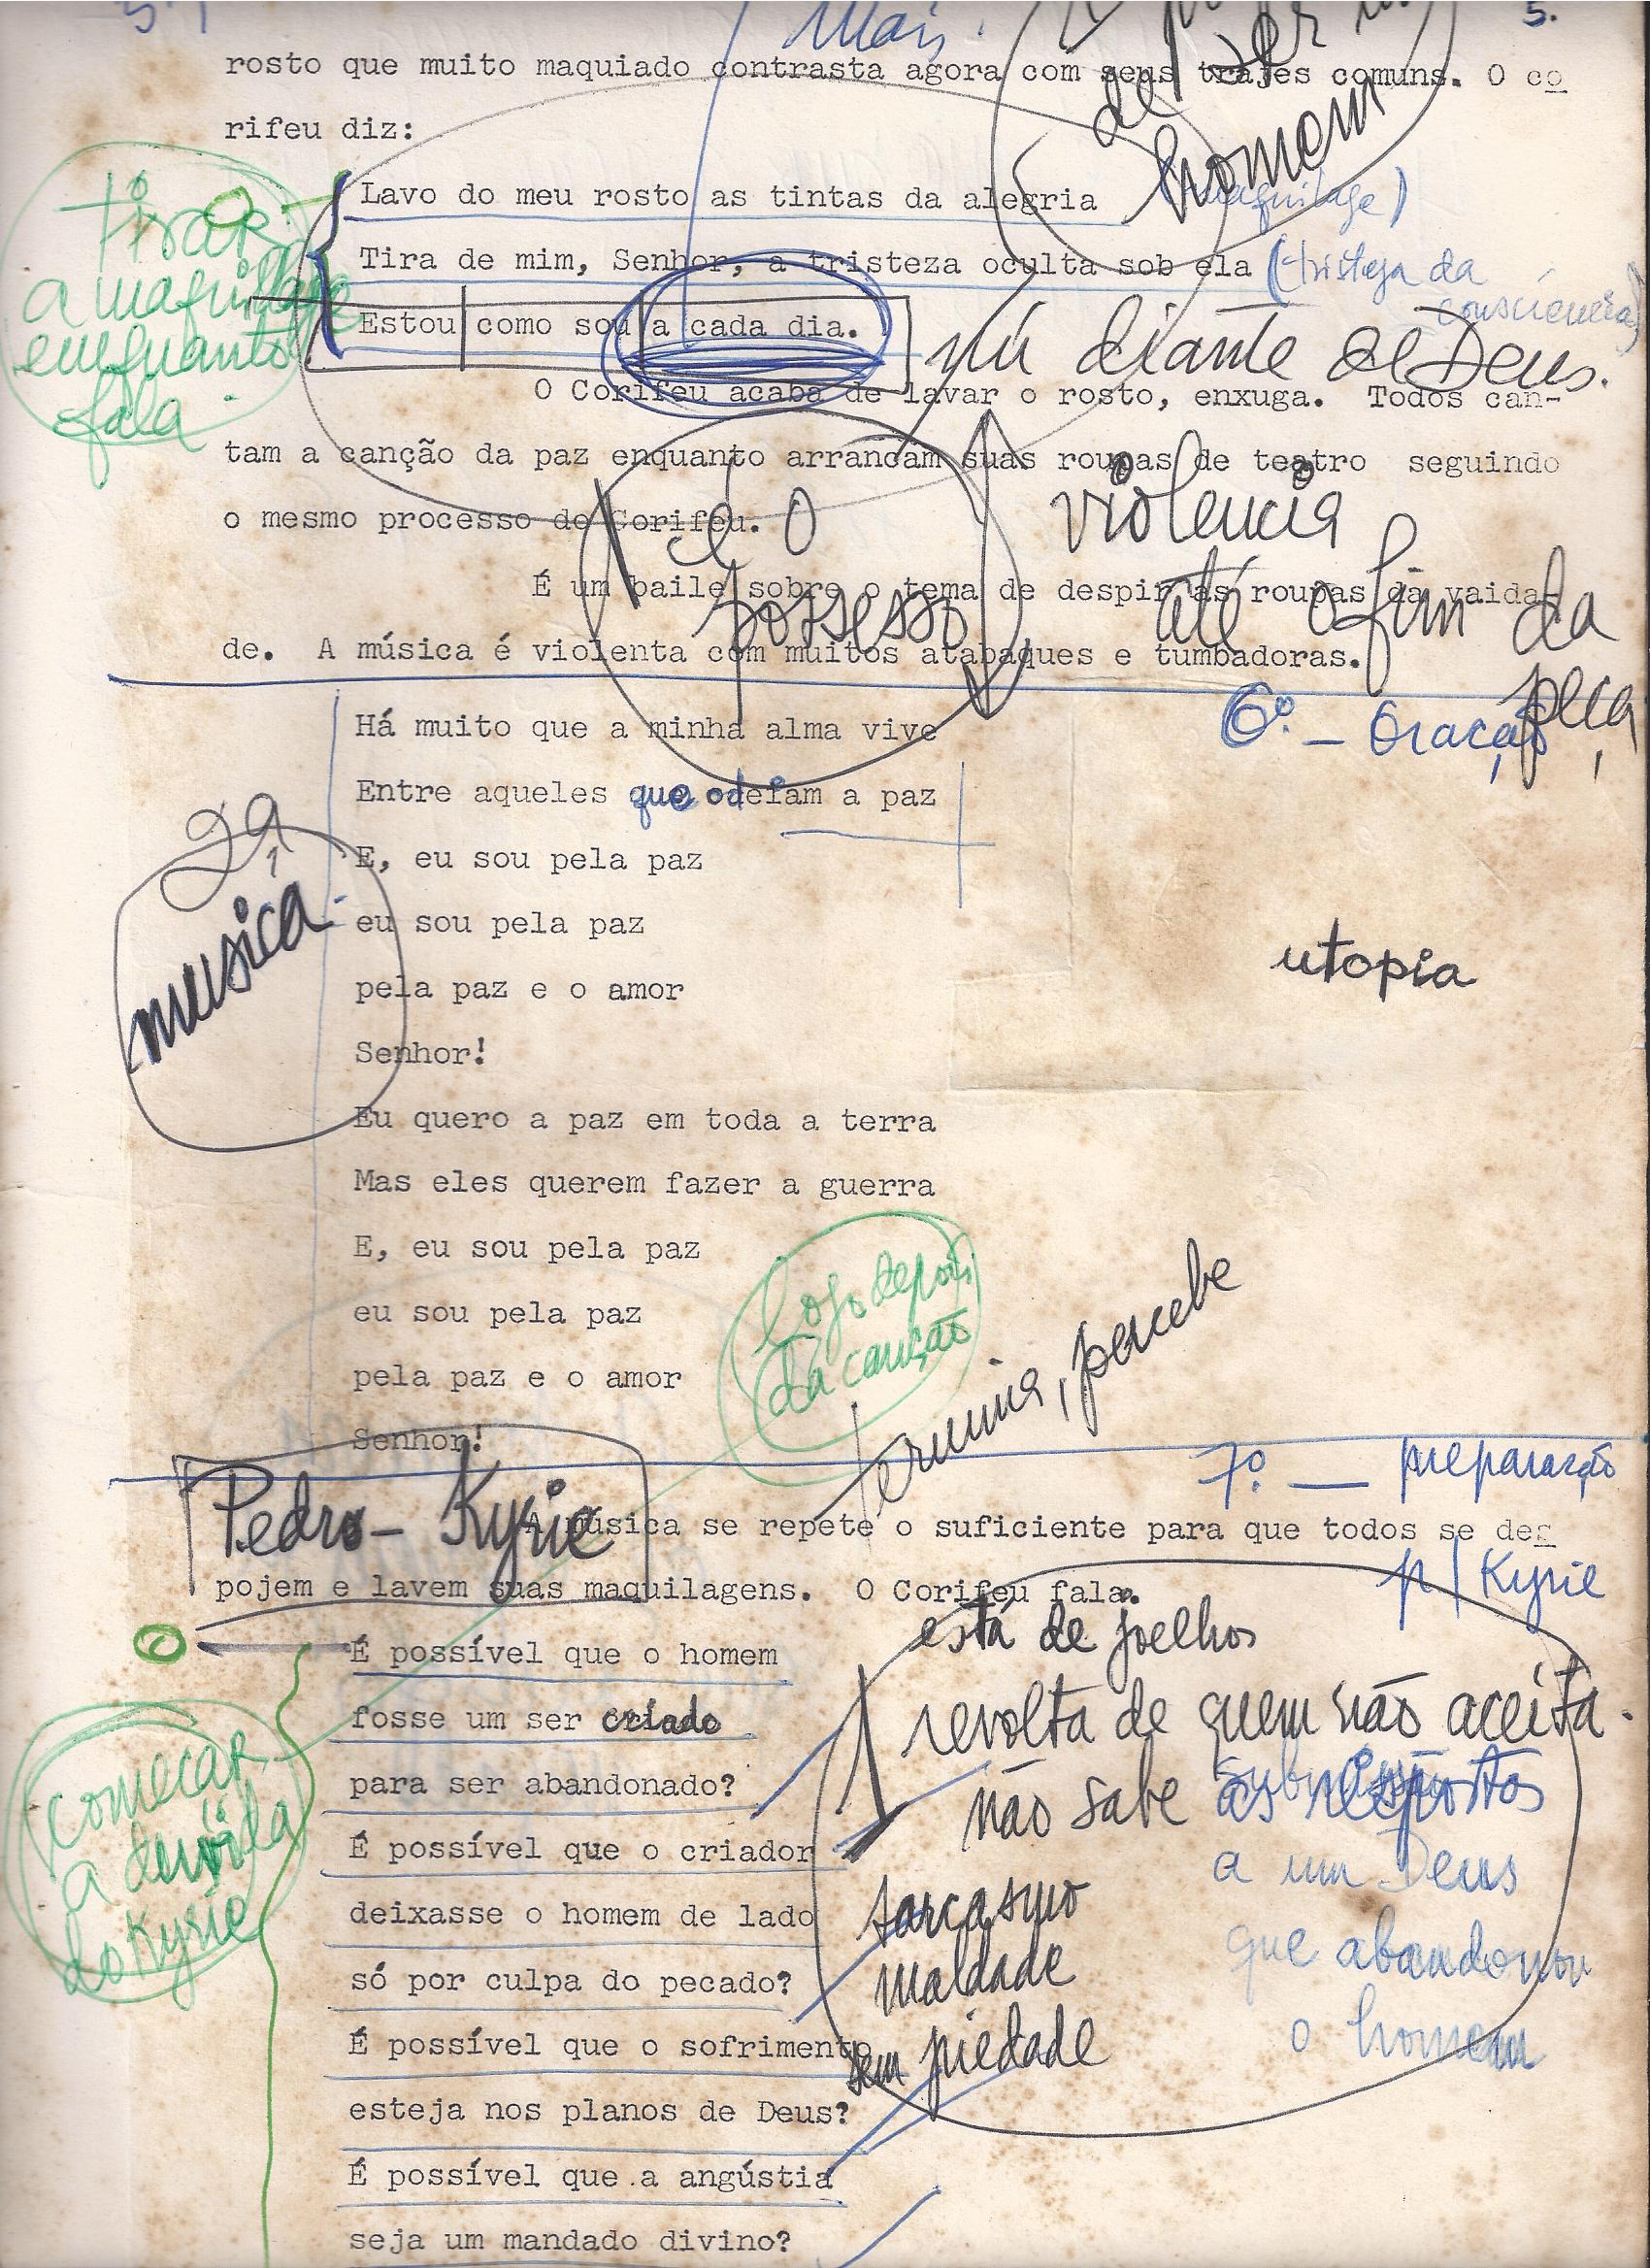 5.
Mais.
de
homem
rosto que muito maquiado contrasta agora com seus trajes comuns. O co
rifeu diz:
tirar
a maquilage
enquanto
fala.
Lavo do meu rosto as tintas da alegria
(maquilage)
Tira de mim, Senhor, a tristeza oculta sob ela
(tristeza da
consciencia)
Estou como sou a cada dia.
nú diante de Deus.
O Corifeu acaba de lavar o rosto, enxuga. Todos can-
tam a canção da paz enquanto arrancam suas roupas de teatro seguindo
o mesmo processo do Corifeu.
é o
possesso
violencia
até o fim da
peça
É um baile sobre o tema de despir as roupas da vaida-
de. A música é violenta com muitos atabaques e tumbadoras.
6º. - Oração
2ª
musica
Há muito que a minha alma vive
Entre aqueles que odeiam a paz
E, eu sou pela paz
eu sou pela paz
pela paz e o amor
Senhor!
utopia
Eu quero a paz em toda a terra
Mas eles querem fazer a guerra
E, eu sou pela paz
eu sou pela paz
pela paz e o amor
Senhor!
logo depois
da canção
termina, percebe
7º. — preparação
p/ Kyrie
Pedro - Kyrie
A música se repete o suficiente para que todos se des
pojem e lavem suas maquilagens. O Corifeu fala.
está de joelhos
É possível que o homem
fosse um ser criado
para ser abandonado?
É possível que o criador
deixasse o homem de lado
só por culpa do pecado?
É possível que o sofrimento
esteja nos planos de Deus?
É possível que a angústia
seja um mandado divino?
revolta de quem não aceita.
não sabe as respostas
a um Deus
que abandonou
o homem
sarcasmo
maldade
sem piedade
começar
a
do Kyrie